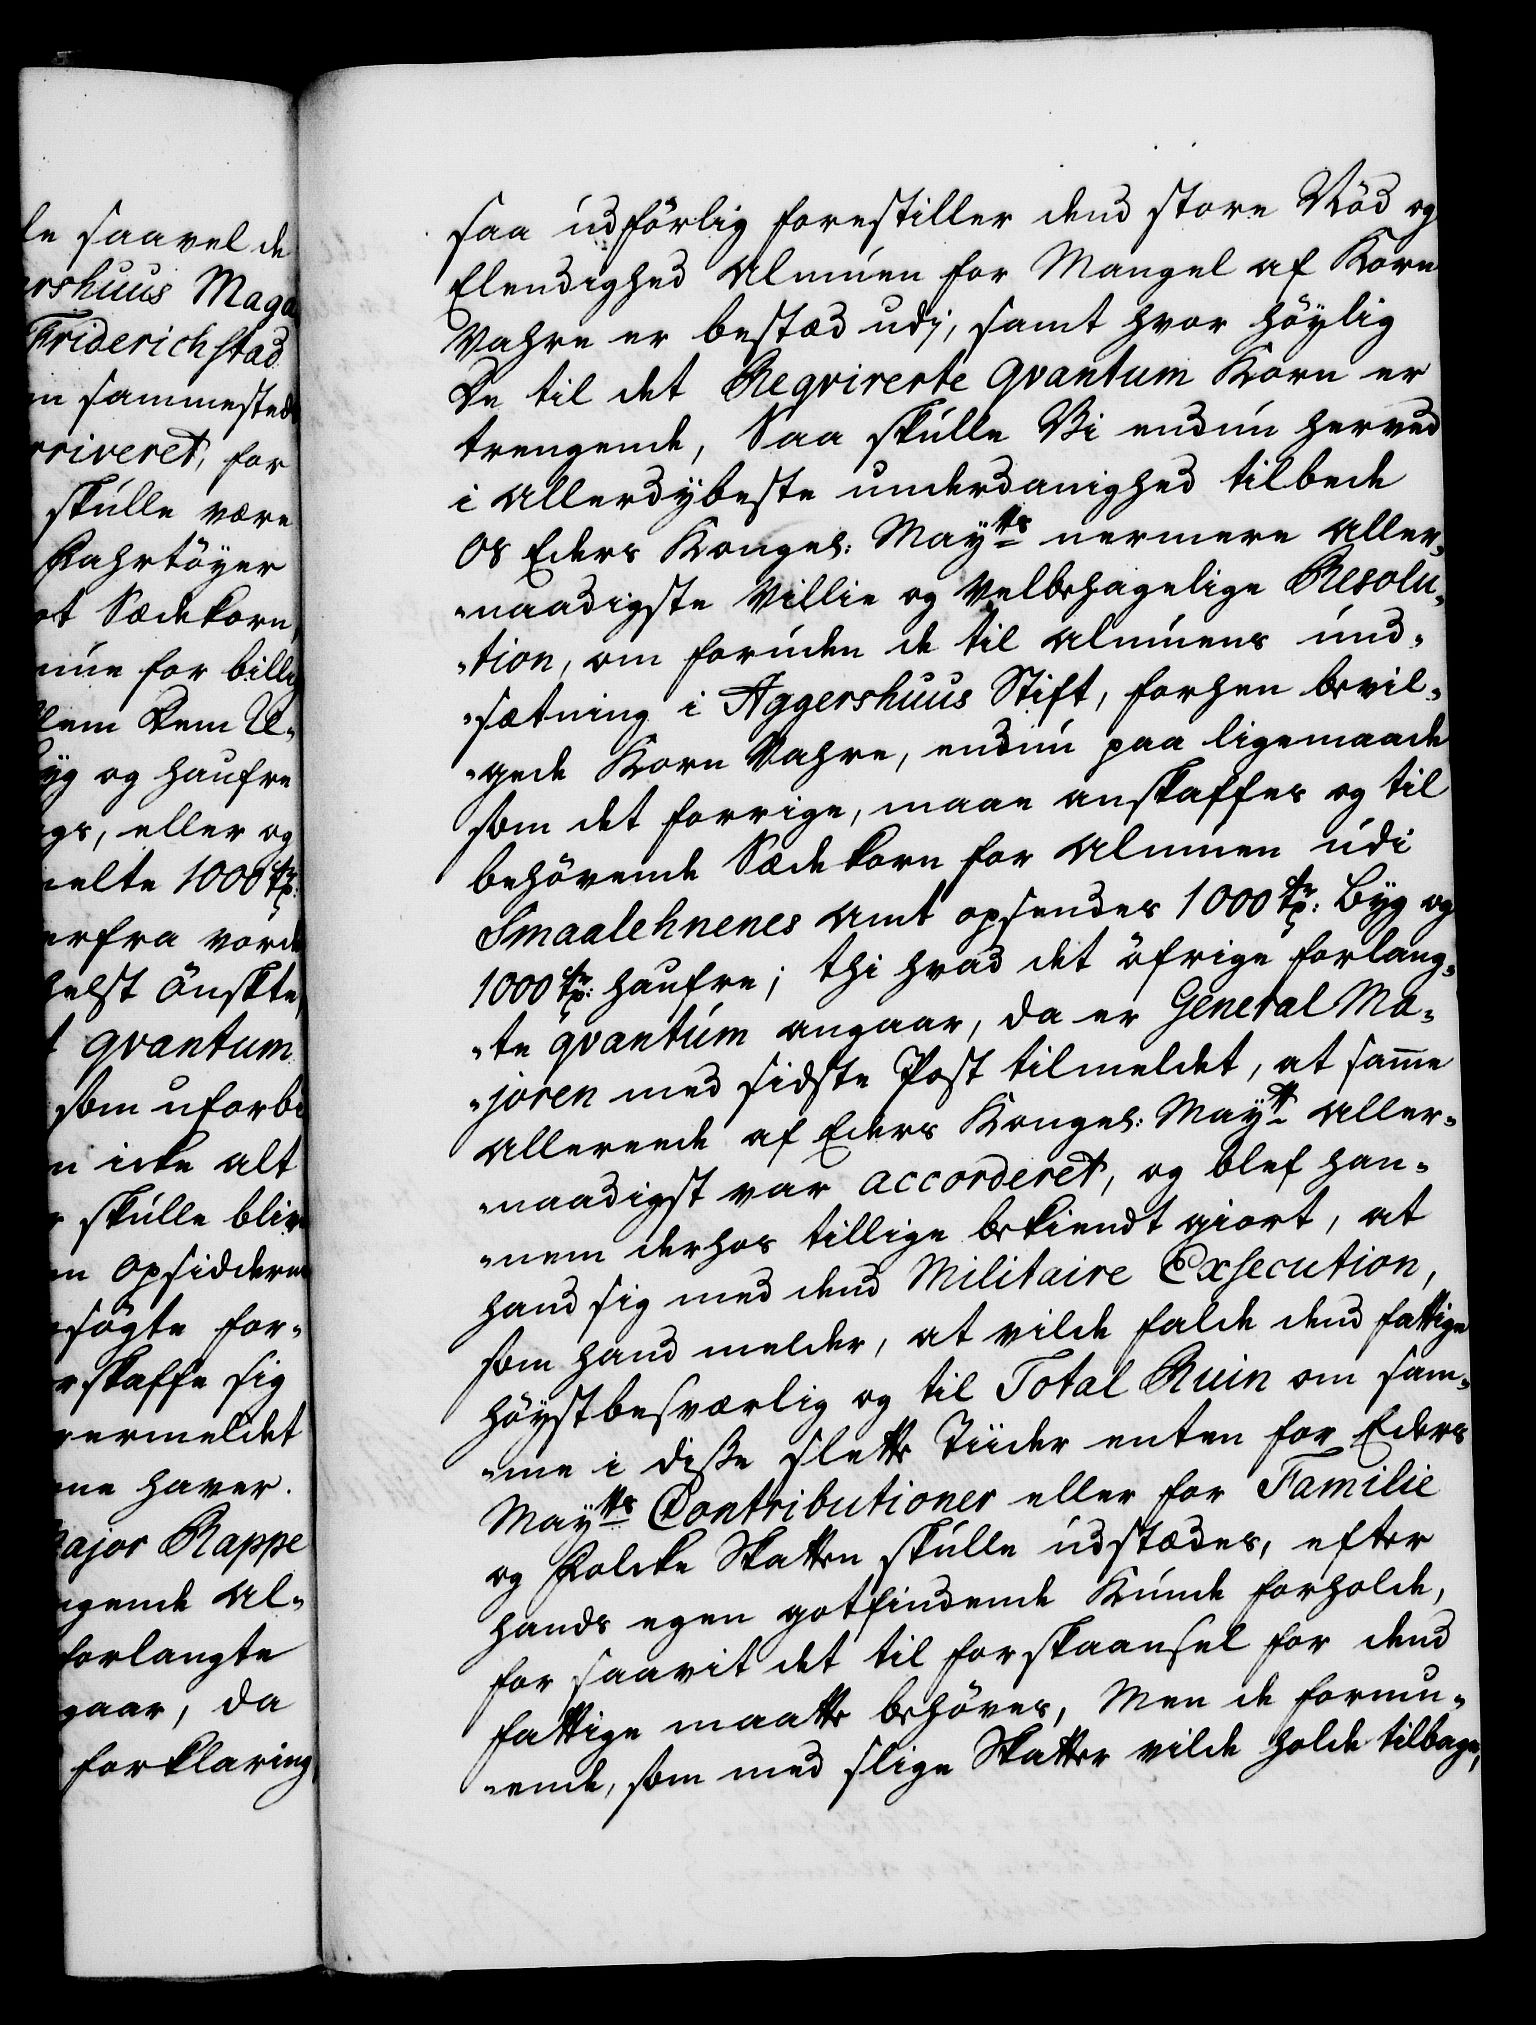 le saavel de
ershuus Maga
Friderichstad
en sammested
rriveret, for
skulle være
Fahrtöyer
et Sædekorn,
mue for billig
lem Dem U-
yg og haufre
gs, eller og
melte 1000 tr:
erfra vorde
helst önskte,
t qvantum
som uforbe
n icke alt
r skulle blive
en opsiddere
esögte for-
rskaffe sig
vermeldet
ne haver.
ajor Rappe
gende Al-
forlangte
gaar, da
forklaring
saa udförlig forestiller dend store Nöd og
Elendighed Almuen for Mangel af Korn
Vahre er bestæd udj, samt hvor höylig
De til det Reqvirerte Qvantum Korn er
trengende, Saa skulle Vi endnu herved
i Allerdybeste underdanighed tilbede
os Eders Kongel: Mayts nermere Aller-
-naadigste Villie og Velbehagelige Resolu-
-tion, om foruden de til Almuens und-
-sætning i Aggershuus Stift, forhen bevil-
-gede Korn Vahre, endnu paa ligemaade
som det forrige, maae anskaffes og til
behövende Sædekorn for Almuen udi
Smaalehnenes Amt opsendes 1000 tr: Byg og
1000 tr: haufre; thi hvad det öfrige forlang-
-te qvantum angaar, da er General Ma-
-joren med sidste Post tilmeldet, at same
allereede af Eders Kongel: Mayt Aller-
-naadigst var accorderet, og blef han-
-nem derhos tillige bekiendt giort, at
hand sig med dend Militaire Exsecution,
som hand melder, at vilde falde dend fattige
höystbesværlig og til Total Ruin om sam-
-me i disse slette Tiider enten for Eders
Mayts Contributioner eller for Familie
og Folcke Skatten skulle udstædes, efter
hands egen gotfindende Kunde forholde,
for saavit det til forskaansel for dend
fattige maatte behöves, Men de formu-
-ende, som med slige Skatter vilde holde tilbage,